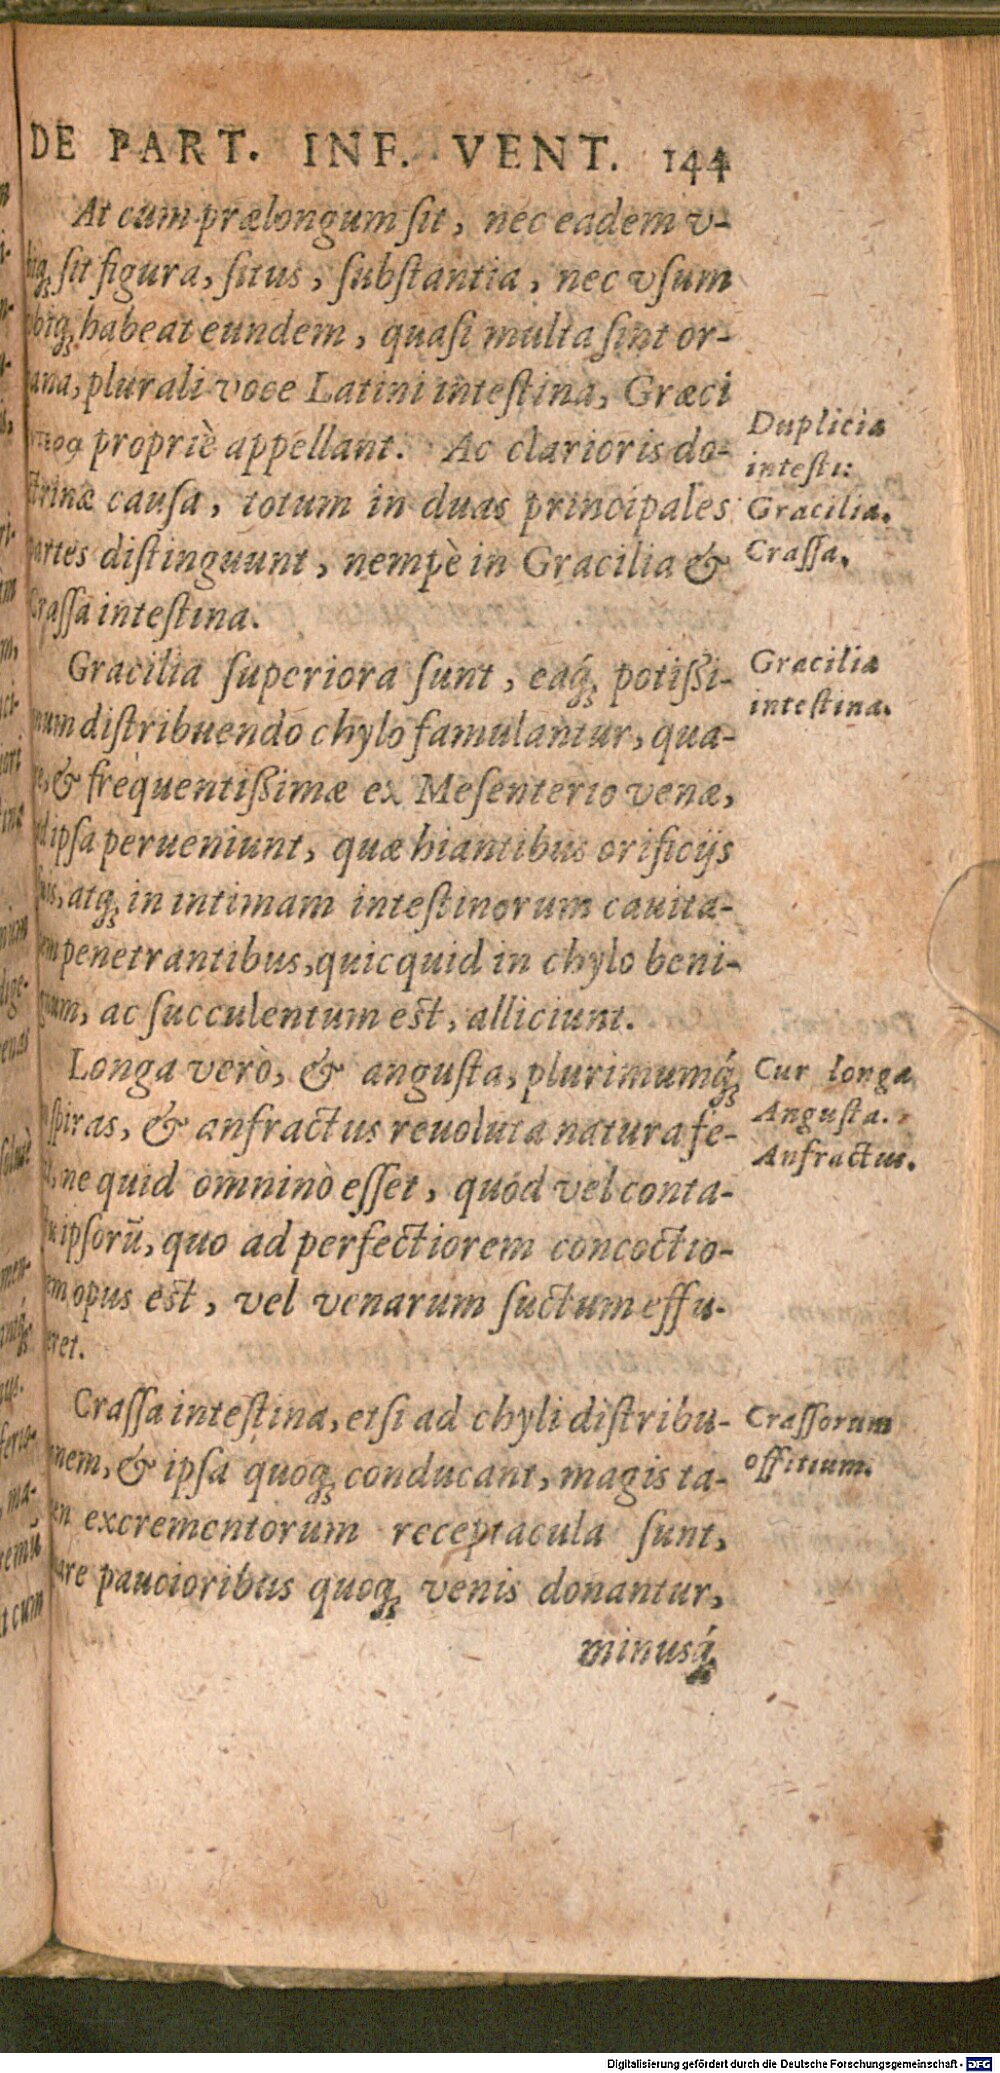 DE PART. INF. VENT. 144
At cum prælongum sit, nec eadem v-
sit figura, situs, substantia, nec vsum
habeat eundem, quasi multa sint or-
plurali voce Latini intestina, Græci
propriè appellant. Ac clarioris do-
causa, totum in duas principales
distinguunt, nempè in Gracilia &
intestina.
Duplicia
intesti:
Gracilia.
Crassa.
Gracilia superiora sunt, eaq́; potissi-
distribuendo chylo famulantur, qua-
& frequentissimæ ex Mesenterio venæ,
ipsa perueniunt, quæ hiantibus orificijs
atq; in intimam intestinorum cauita-
penetrantibus, quicquid in chylo beni-
ac succulentum est, alliciunt.
Gracilia
intestina.
Longa verò, & angusta, plurimumq́;
& anfractus reuoluta natura fe-
ne quid omninò esset, quod vel conta-
ipsorū, quo ad perfectiorem concoctio-
opus est, vel venarum suctum effu-
Cur longa
Angusta.
Anfractus.
Crassa intestina, etsi ad chyli distribu-
& ipsa quoq; conducant, magis ta-
excrementorum receptacula sunt,
paucioribus quoq; venis donantur,
minusq́;
Crassorum
offitium.
Digitalisierung gefördert durch die Deutsche Forschungsgemeinschaft - DFG